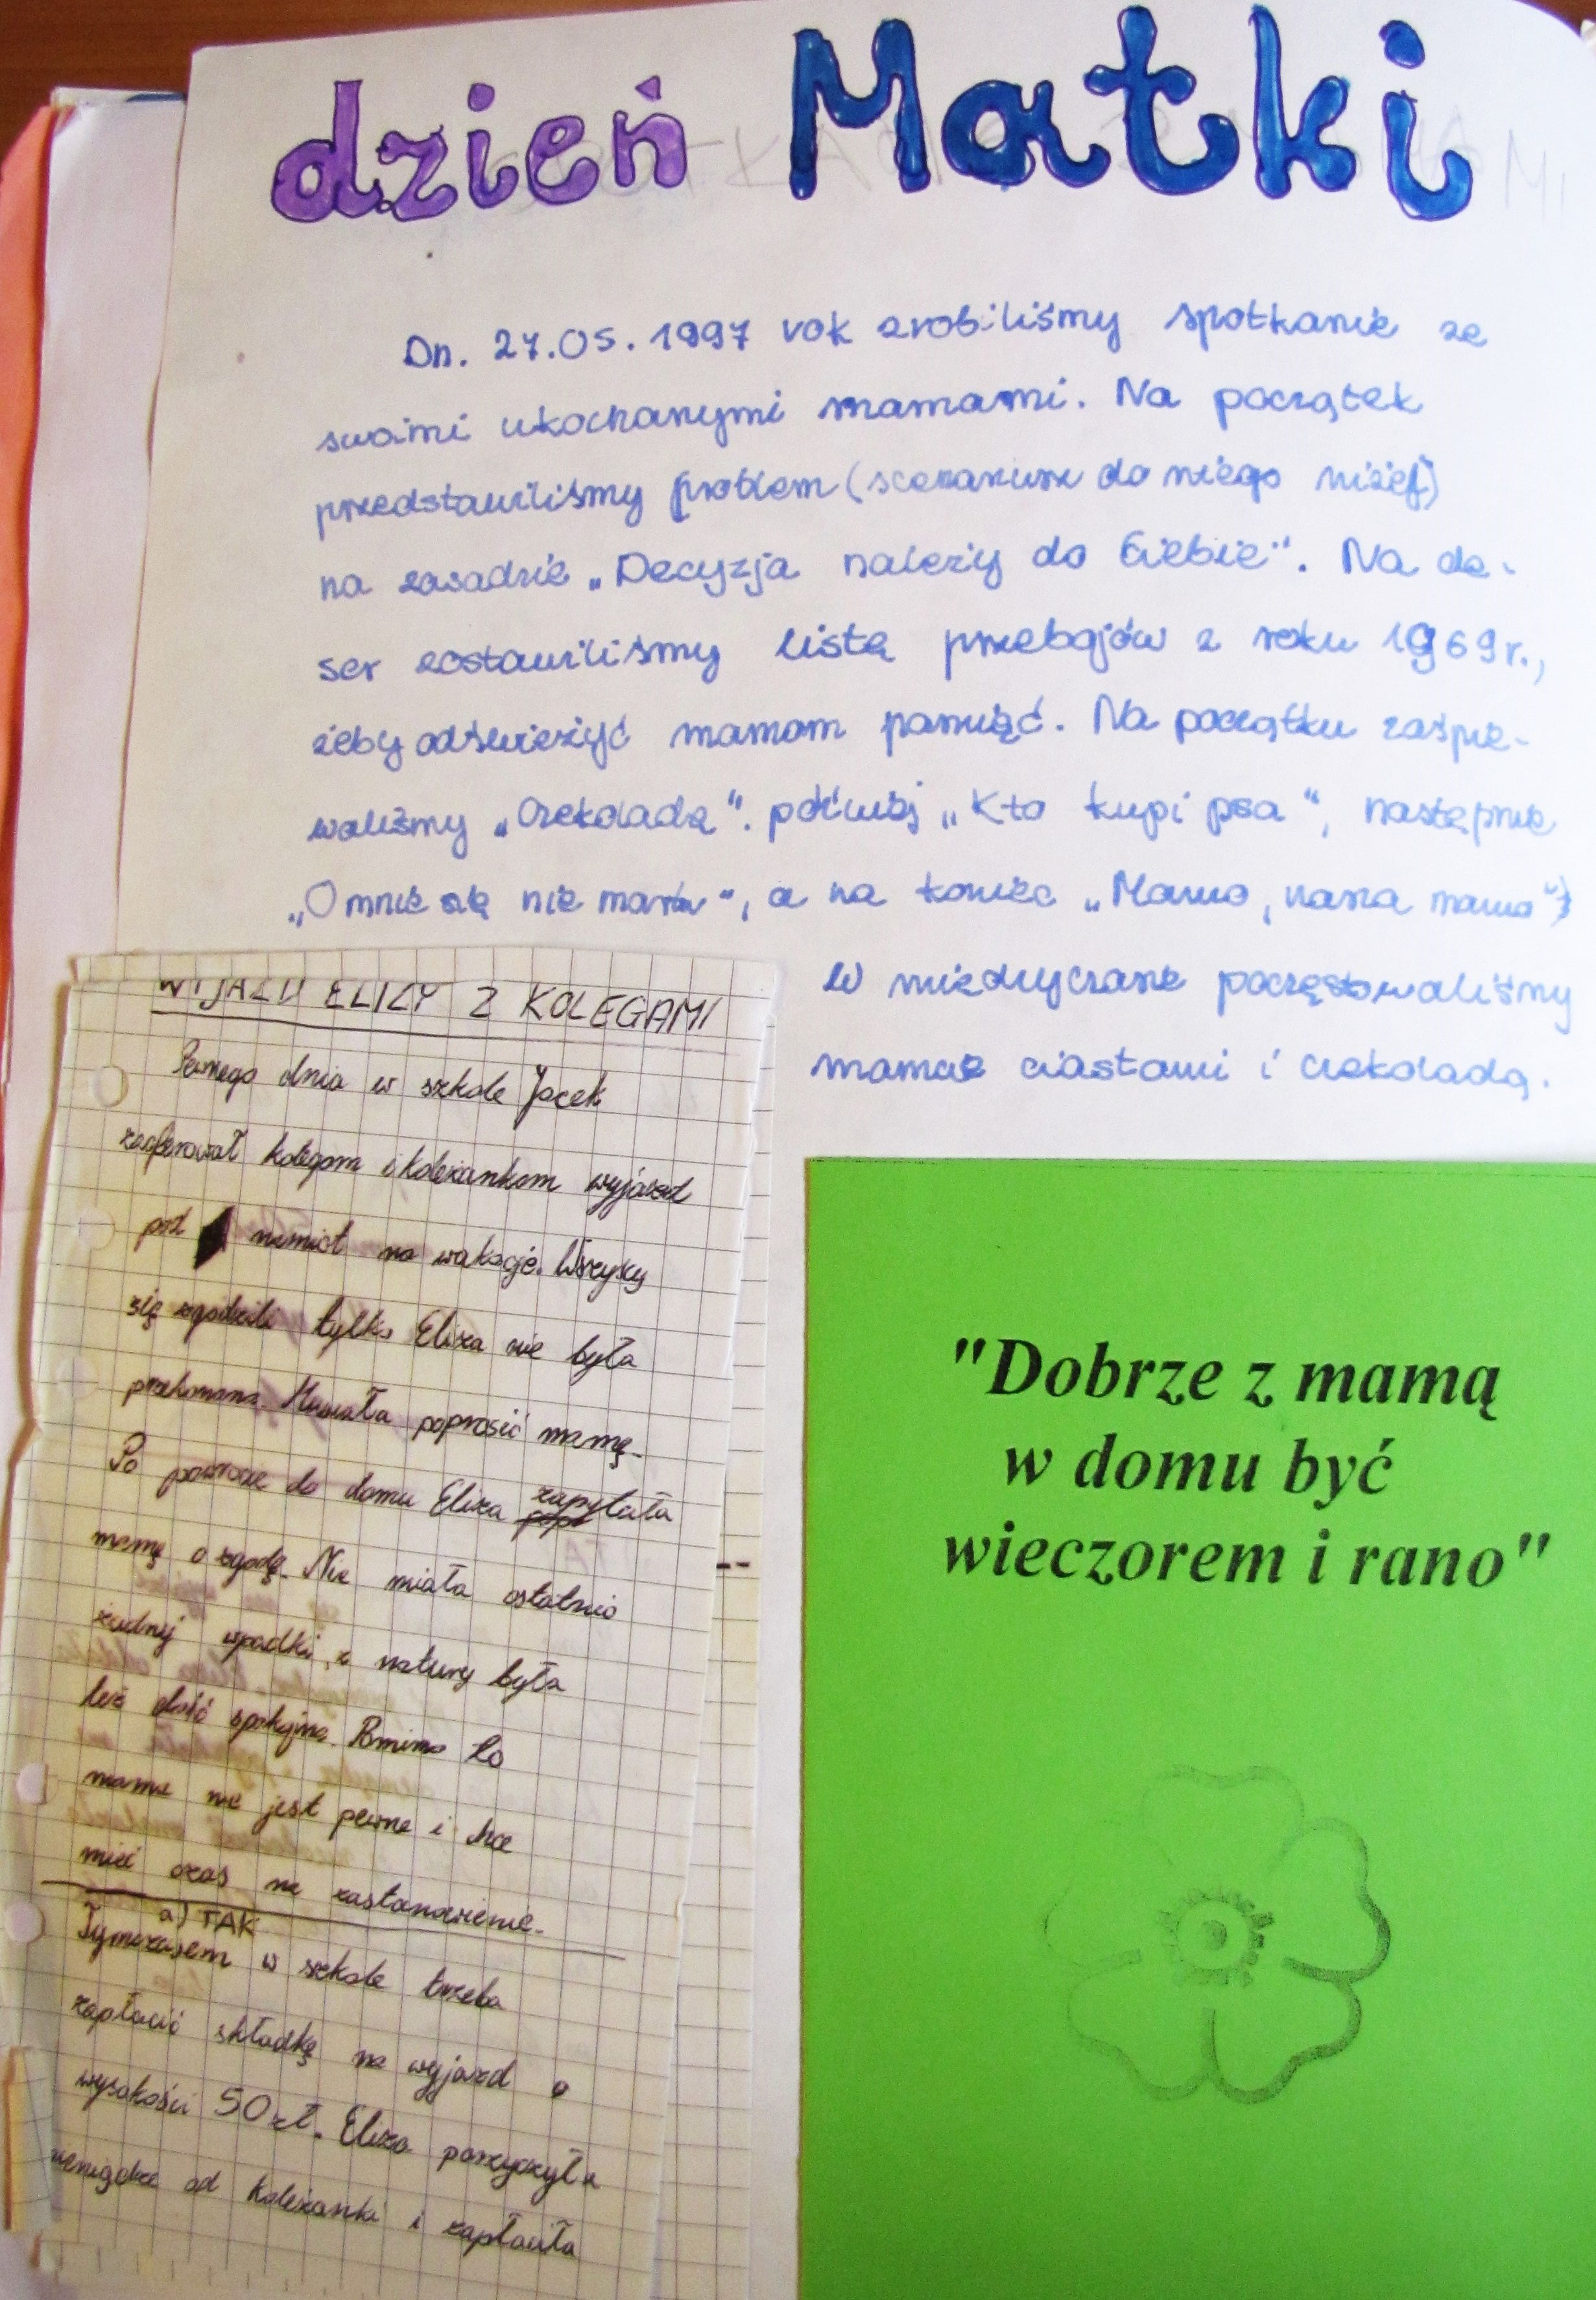 dzień Matki
Dn. 27.05.1997 rok zrobiliśmy spotkanie ze
swoimi ukochanymi mamami. Na początek
przedstawiliśmy problem (scenariusz do niego niżej)
na zasadzie „Decyzja należy do Ciebie". Na de-
ser zostawiliśmy listę przebojów z roku 1969r.,
żeby odświeżyć mamom pamięć. Na początku zaśpie-
waliśmy „Czekoladę". później „Kto kupi psa", następnie
„O mnie się nie martw", a na koniec „Mamo, nasza mamo"
W międzyczasie poczęstowaliśmy
mamy ciastami i czekoladą.
WYJAZD ELIZY Z KOLEGAMI
Pewnego dnia w szkole Jacek
zaoferował kolegom i koleżankom wyjazd
pod namiot na wakacje. Wszyscy
się zgodzili tylko Eliza nie była
przekonana. Musiała poprosić mamę.
Po powrocie do domu Eliza zapytała
mamę o zgodę. Nie miała ostatnio
żadnej wpadki, z natury była
też dość spokojna. Pomimo to
mama nie jest pewna i chce
mieć czas na zastanowienie.
a) TAK
Tymczasem w szkole trzeba
zapłacić składkę na wyjazd o
wysokości 50 zł. Eliza pożyczyła
pieniądze od koleżanki i zapłaciła
"Dobrze z mamą
w domu być
wieczorem i rano"